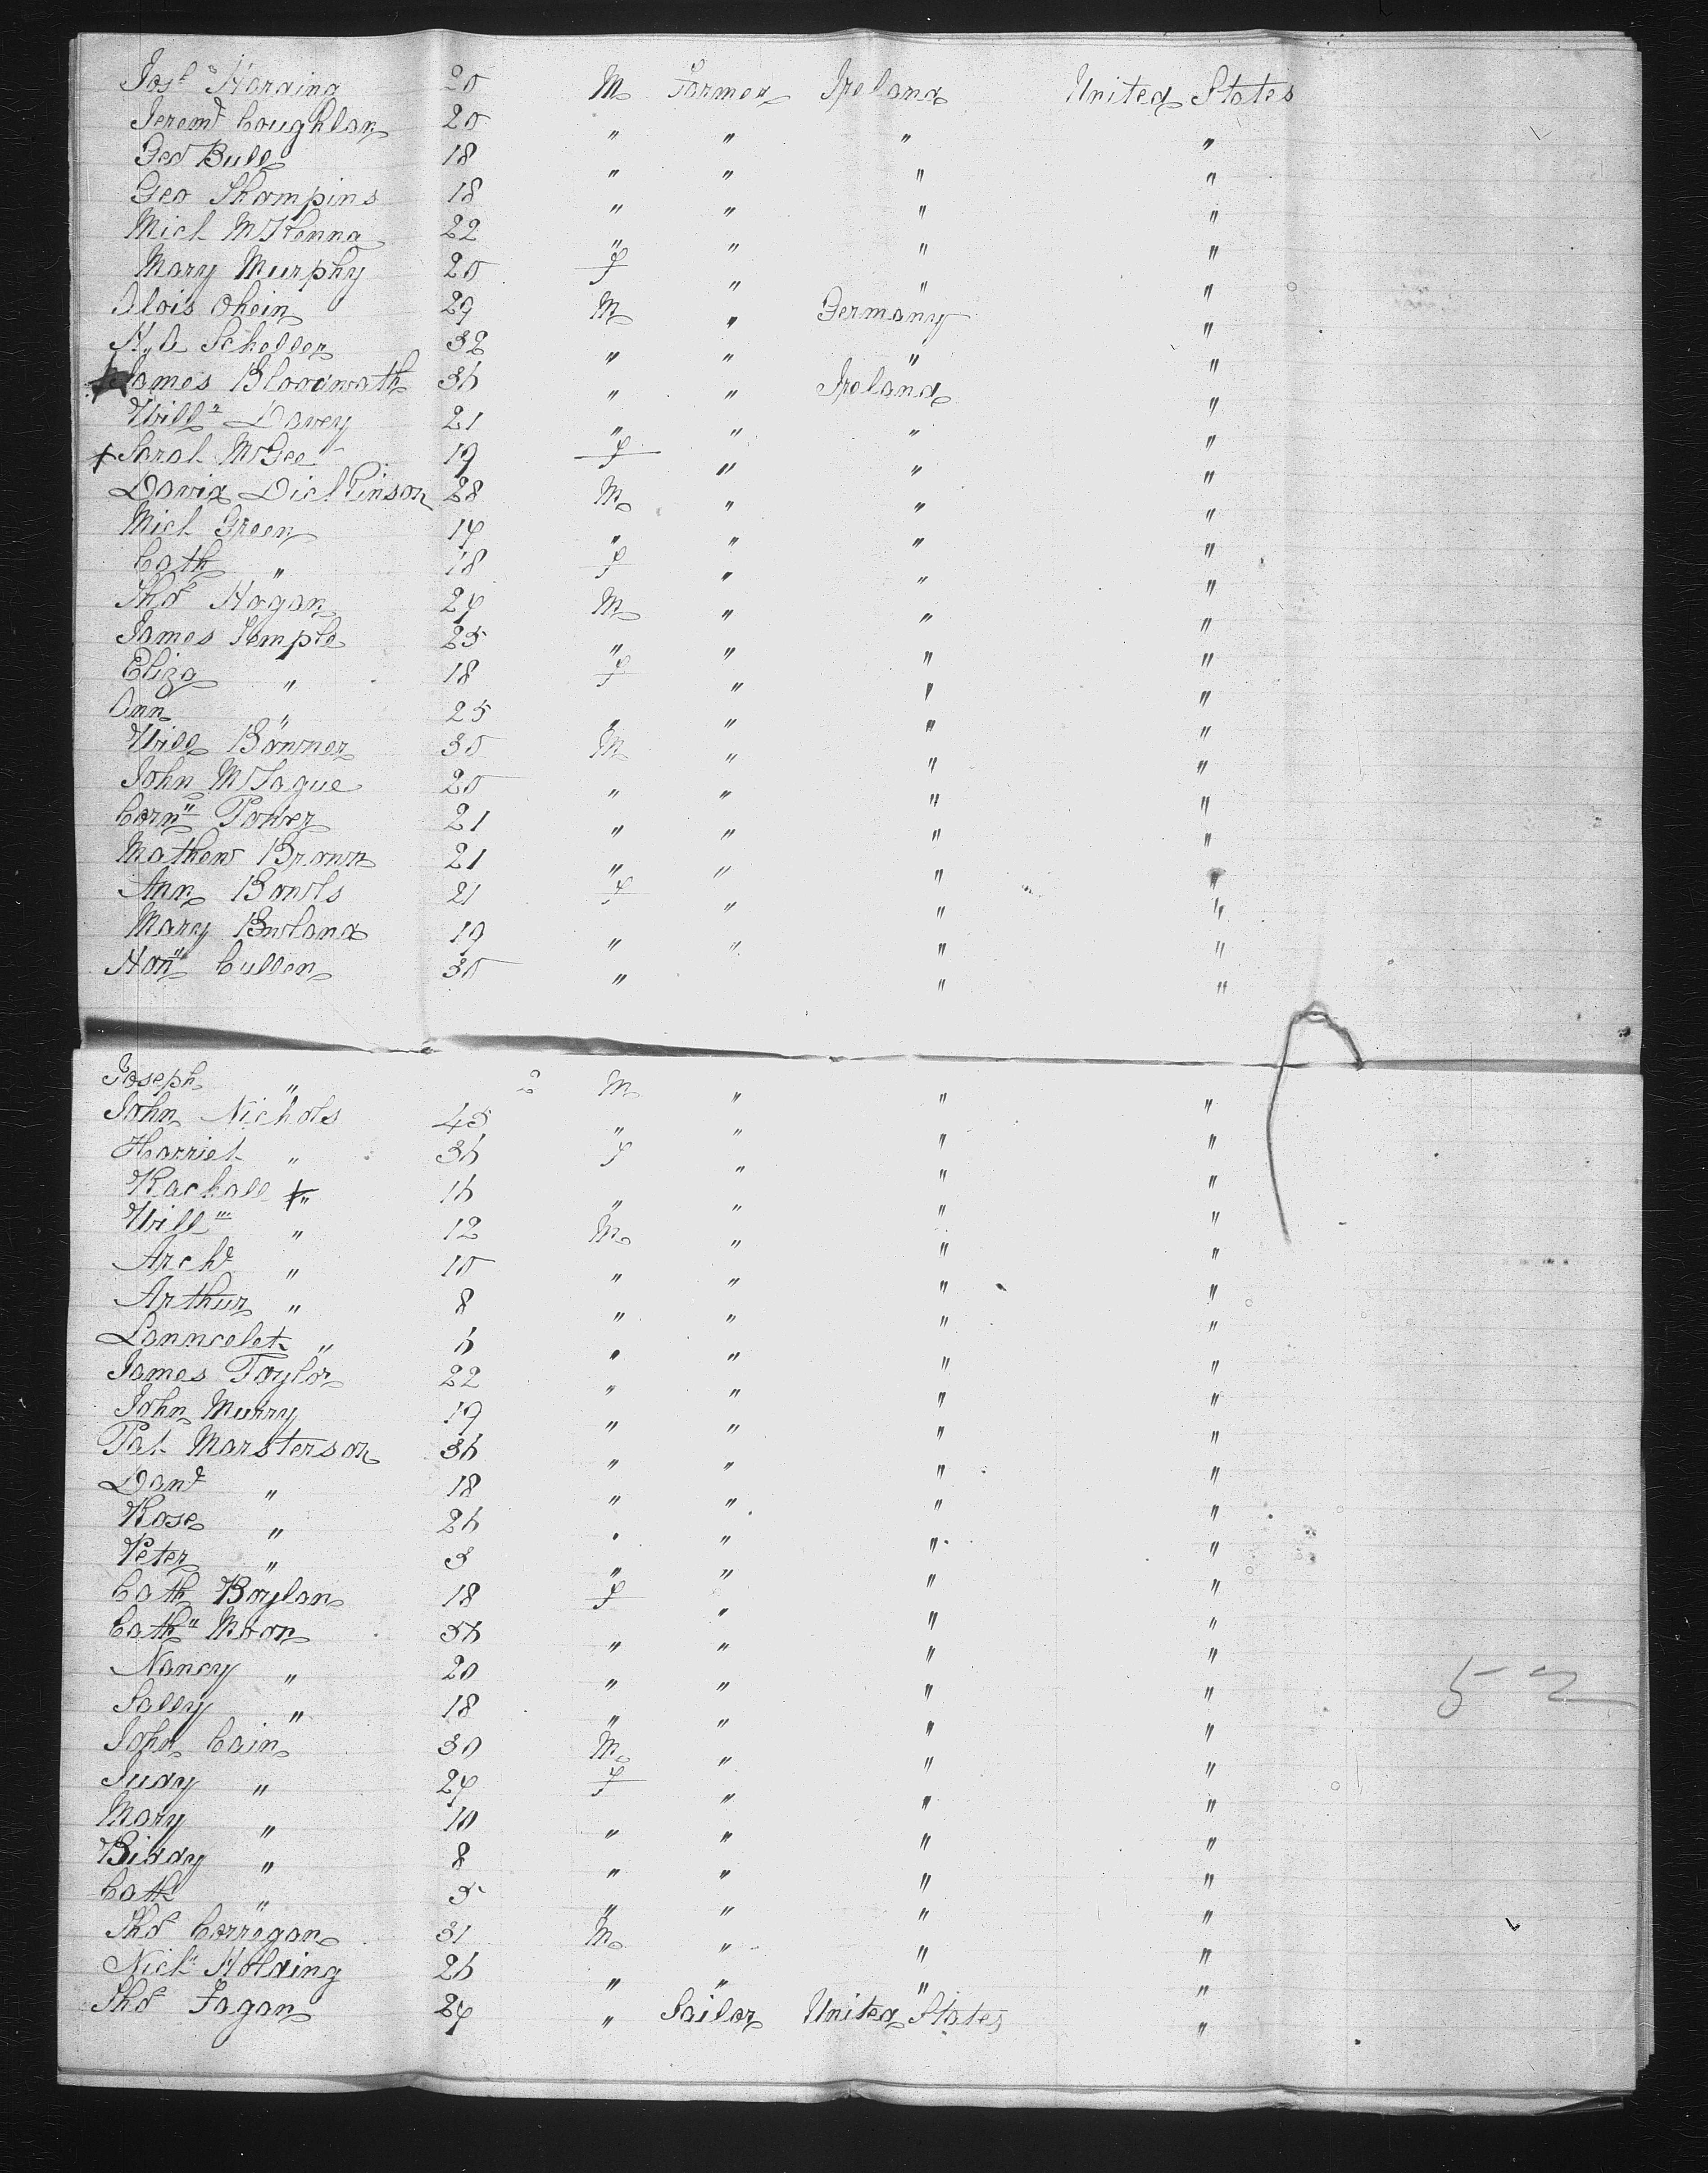 Josh Harding 20 M Farmer Ireland United States
Jeremh Coughlan 20 " " " "
Geo Bull 18 " " " "
Geo Thompins 18 " " " "
Mich McKenna 22 " " " "
Mary Murphy 20 f " " "
Alois Ohein 29 M " Germany "
H. A Scheller 32 " " " "
James Bloodwath 36 " " Ireland "
Willm Davey 21 " " " "
x Sarah McGee 19 f " " "
David Dickinson 28 M " " "
Mich Green 14 " " " "
Cath " 18 f " " "
Thos Hogan 24 M " " "
James Temple 25 " " " "
Eliza " 18 f " " "
Ann " 25 " " " "
Will Bonner 30 M " " "
John McTague 20 " " " "
Corns Power 21 " " " "
Mathew Brown 21 " " " "
Ann Bowls 21 f " " "
Mary Bowland 19 " " " "
Hon Cullen 30 " " "
Joseph " 2 M " " "
John Nichols 45 " " " "
Harriet " 36 f " " "
Rachall x " 16 " " " "
Willm " 12 M " " "
Archd " 10 " " " "
Arthur " 8 " " " "
Lanncelet " 6 " " " "
James Taylor 22 " " " "
John Murry 19 " " " "
Pat Marsterson 36 " " " "
Danl " 18 " " " "
Rose " 26 " " " "
Peter " 3 " " " "
Cath Boylan 18 f " " "
Cath Moon 36 " " " "
Nancy " 20 " " " "
Sally " 18 " " " "
John Cain 30 M " " "
Judy " 24 f " " "
Mary " 10 " " " "
Biddy " 8 " " " "
Cath " 5 " " " "
Thos Corregan 31 M " " "
Nichs Holding 26 " " " "
Thos Fagan 24 " Sailor United States "
52